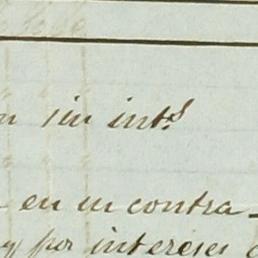 sin ints
en un contra
y por intereses